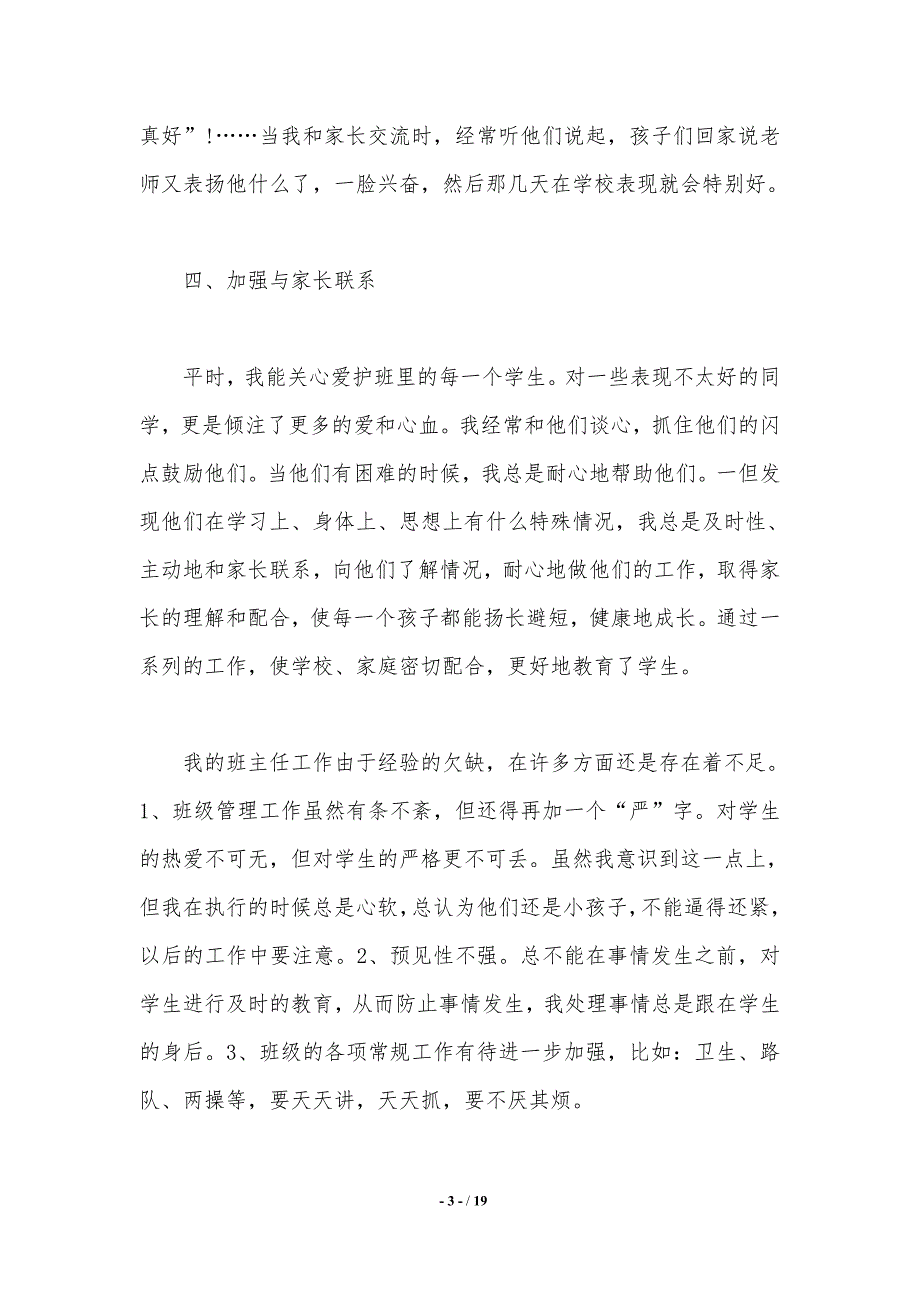 真好”!……当我和家长交流时，经常听他们说起，孩子们回家说老
师又表扬他什么了，一脸兴奋，然后那几天在学校表现就会特别好。
四、加强与家长联系
平时，我能关心爱护班里的每一个学生。对一些表现不太好的同
学，更是倾注了更多的爱和心血。我经常和他们谈心，抓住他们的闪
点鼓励他们。当他们有困难的时候，我总是耐心地帮助他们。一但发
现他们在学习上、身体上、思想上有什么特殊情况，我总是及时性、
主动地和家长联系，向他们了解情况，耐心地做他们的工作，取得家
长的理解和配合，使每一个孩子都能扬长避短，健康地成长。通过一
系列的工作，使学校、家庭密切配合，更好地教育了学生。
我的班主任工作由于经验的欠缺，在许多方面还是存在着不足。
1、班级管理工作虽然有条不紊，但还得再加一个“严”字。对学生
的热爱不可无，但对学生的严格更不可丢。虽然我意识到这一点上，
但我在执行的时候总是心软，总认为他们还是小孩子，不能逼得还紧，
以后的工作中要注意。2、预见性不强。总不能在事情发生之前，对
学生进行及时的教育，从而防止事情发生，我处理事情总是跟在学生
的身后。3、班级的各项常规工作有待进一步加强，比如：卫生、路
队、两操等，要天天讲，天天抓，要不厌其烦。
- 3 - / 19